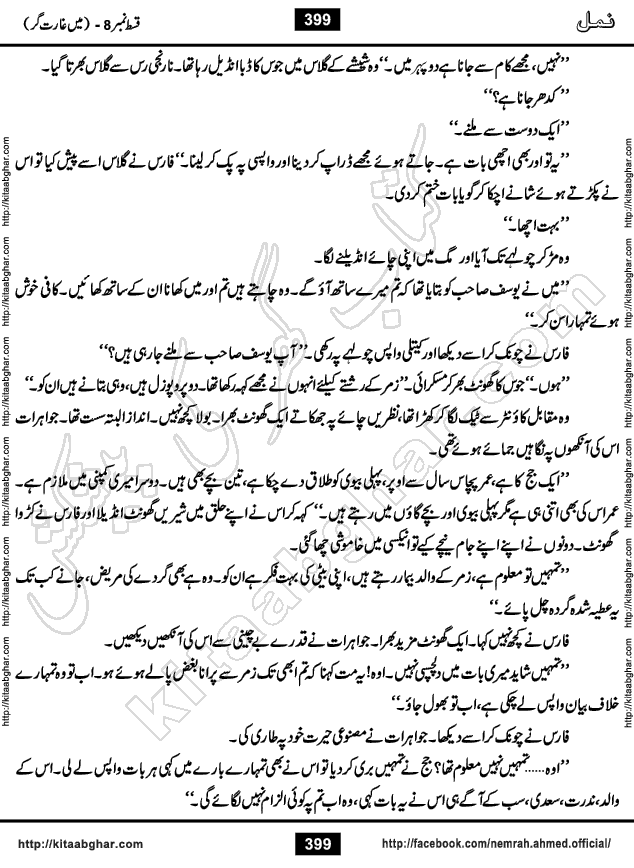 نمل
399
قسط نمبر 8 - (میں غارت گر)
’’نہیں، مجھے کام سے جانا ہے دوپہر میں۔‘‘ وہ شیشے کے گلاس میں جوس کا ڈبا انڈیل رہا تھا۔ نارنجی رس سے گلاس بھرتا گیا۔
’’کدھر جانا ہے؟‘‘
’’ایک دوست سے ملنے۔‘‘
’’یہ تو اور بھی اچھی بات ہے۔ جاتے ہوئے مجھے ڈراپ کر دینا اور واپسی پہ پک کر لینا۔‘‘ فارس نے گلاس اسے پیش کیا تو اس
نے پکڑتے ہوئے شانے اچکا کر گویا بات ختم کر دی۔
’’بہت اچھا۔‘‘
وہ مڑ کر چولہے تک آیا اور مگ میں اپنی چائے انڈیلنے لگا۔
’’میں نے یوسف صاحب کو بتایا تھا کہ تم میرے ساتھ آؤ گے۔ وہ چاہتے ہیں تم اور میں کھانا ان کے ساتھ کھائیں۔ کافی خوش
ہوئے تمہارا سن کر۔‘‘
فارس نے چونک کر اسے دیکھا اور کیتلی واپس چولہے پہ رکھی۔ ’’آپ یوسف صاحب سے ملنے جا رہی ہیں؟‘‘
’’ہوں۔‘‘ جوس کا گھونٹ بھر کر مسکرائی۔ ’’زمر کے رشتے کیلئے انہوں نے مجھے کہہ رکھا تھا۔ دو پروپوزل ہیں، وہی بتانے ہیں ان کو۔‘‘
وہ مقابل کاؤنٹر سے ٹیک لگا کر کھڑا تھا، نظریں چائے پہ جھکائے ایک گھونٹ بھرا۔ بولا کچھ نہیں۔ انداز البتہ سست تھا۔ جواہرات
اس کی آنکھوں پہ نگاہیں جمائے ہوئے تھی۔
’’ایک جج کا ہے، عمر پچاس سال سے اوپر، پہلی بیوی کو طلاق دے چکا ہے، تین بچے بھی ہیں۔ دوسرا میری کمپنی میں ملازم ہے۔
عمر اس کی بھی اتنی ہی ہے مگر پہلی بیوی اور بچے گاؤں میں رہتے ہیں۔‘‘ کہہ کر اس نے اپنے حلق میں شیریں گھونٹ انڈیلا اور فارس نے کڑوا
گھونٹ۔ دونوں نے اپنے اپنے جام نیچے کیے تو انیکسی میں خاموشی چھا گئی۔
’’تمہیں تو معلوم ہے، زمر کے والد بیمار رہتے ہیں، اپنی بیٹی کی بہت فکر ہے ان کو۔ وہ ہے بھی گردے کی مریض، جانے کب تک
یہ عطیہ شدہ گردہ چل پائے۔‘‘
فارس نے کچھ نہیں کہا۔ ایک گھونٹ مزید بھرا۔ جواہرات نے قدرے بے چینی سے اس کی آنکھیں دیکھیں۔
’’تمہیں شاید میری بات میں دلچسپی نہیں۔ اوہ! یہ مت کہنا کہ تم ابھی تک زمر سے پرانا بغض پالے ہوئے ہو۔ اب تو وہ تمہارے
خلاف بیان واپس لے چکی ہے، اب تو بھول جاؤ۔‘‘
فارس نے چونک کر اسے دیکھا۔ جواہرات نے مصنوعی حیرت خود پہ طاری کی۔
’’اوہ......تمہیں نہیں معلوم تھا؟ جج نے تمہیں بری کر دیا تو اس نے بھی تمہارے بارے میں کہی ہر بات واپس لے لی۔ اس کے
والد، ندرت، سعدی، سب کے آگے ہی اس نے یہ بات کہی، وہ اب تم پہ کوئی الزام نہیں لگائے گی۔‘‘
http://kitaabghar.com
399
http://facebook.com/nemrah.ahmed.official/
http://kitaabghar.com http://kitaabghar.com http://kitaabghar.com http://kitaabghar.com http://kitaabghar.com http://kitaabghar.com
http://kitaabghar.com http://kitaabghar.com http://kitaabghar.com http://kitaabghar.com http://kitaabghar.com http://kitaabghar.com
کتاب گھر کی پیشکش
kitaabghar.com